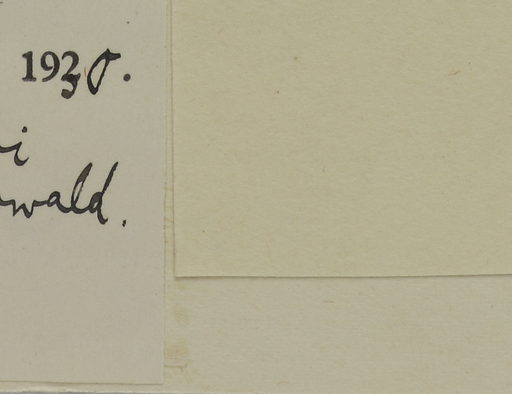 1935.
i
wald.